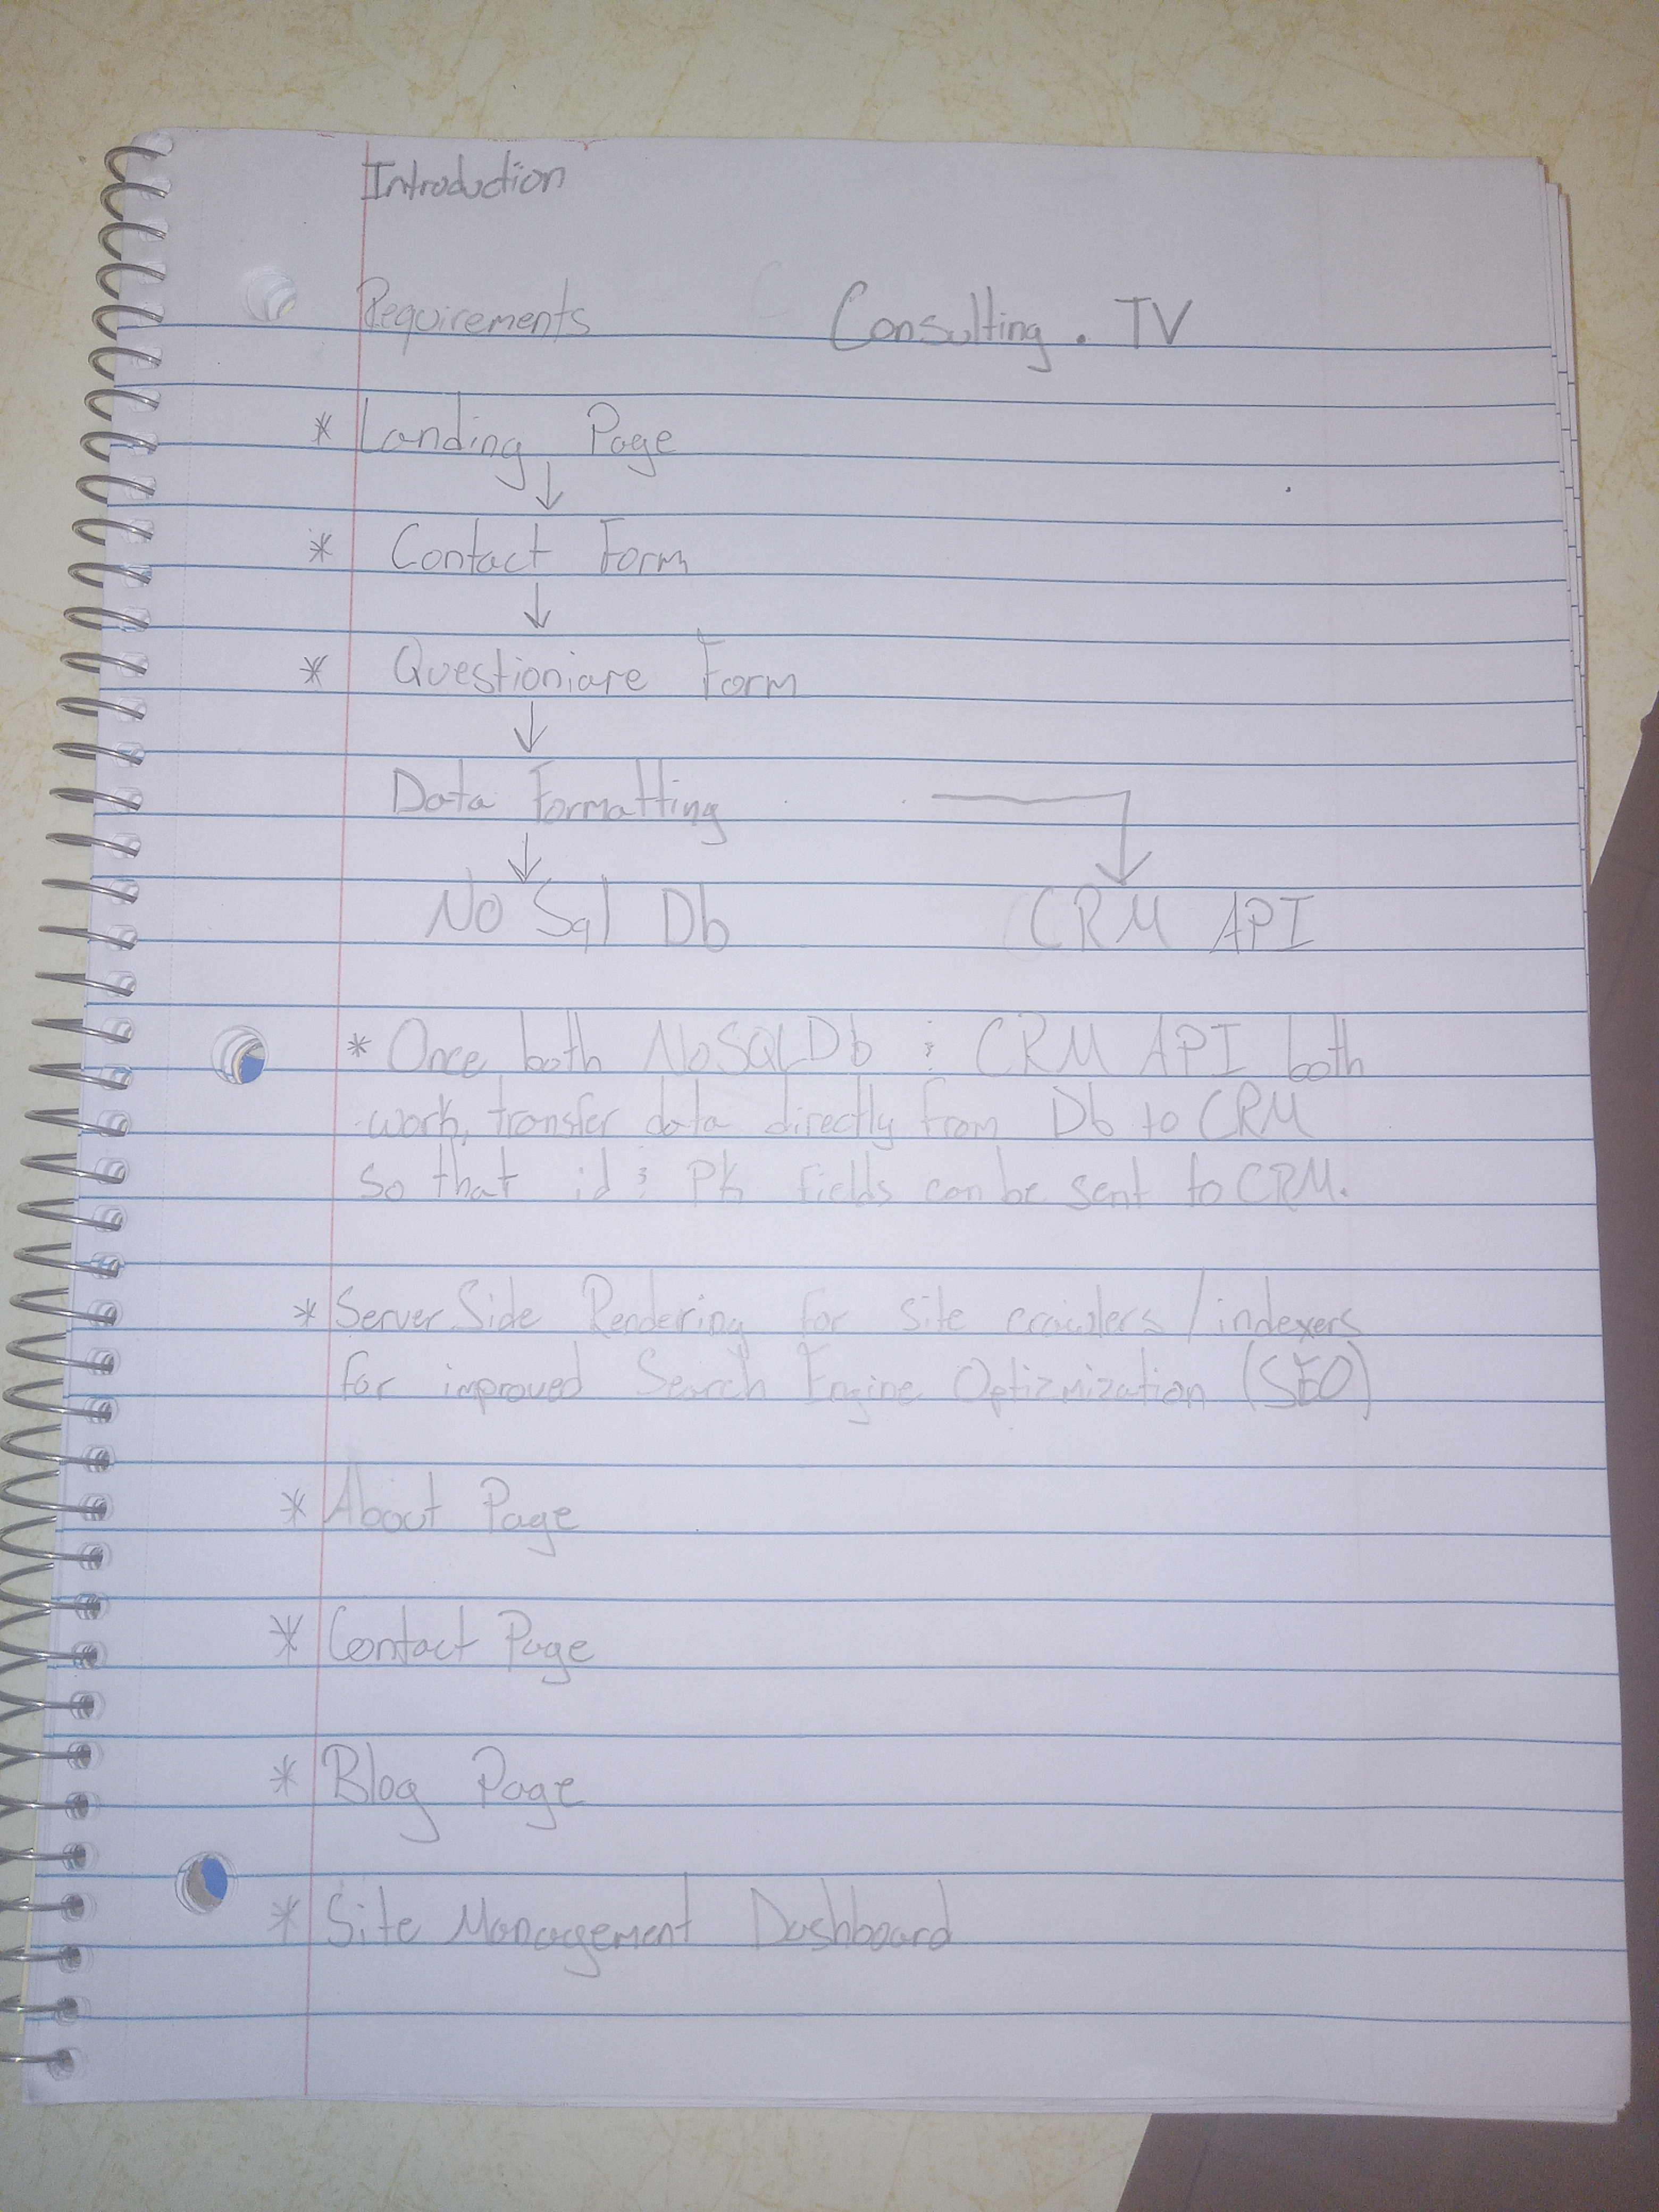 Introduction
Requirements Consulting . TV
* Landing Page
↓
* Contact Form
↓
* Questioniare Form
↓
Data Formatting
↓
No Sql Db CRM API
* Once both NoSQLDb & CRM API both
work, transfer data directly from Db to CRM
so that id & PK fields can be sent to CRM.
* Server Side Rendering for site crawlers/indexers
for improved Search Engine Optizmization (SEO)
* About Page
* Contact Page
* Blog Page
* Site Management Dashboard